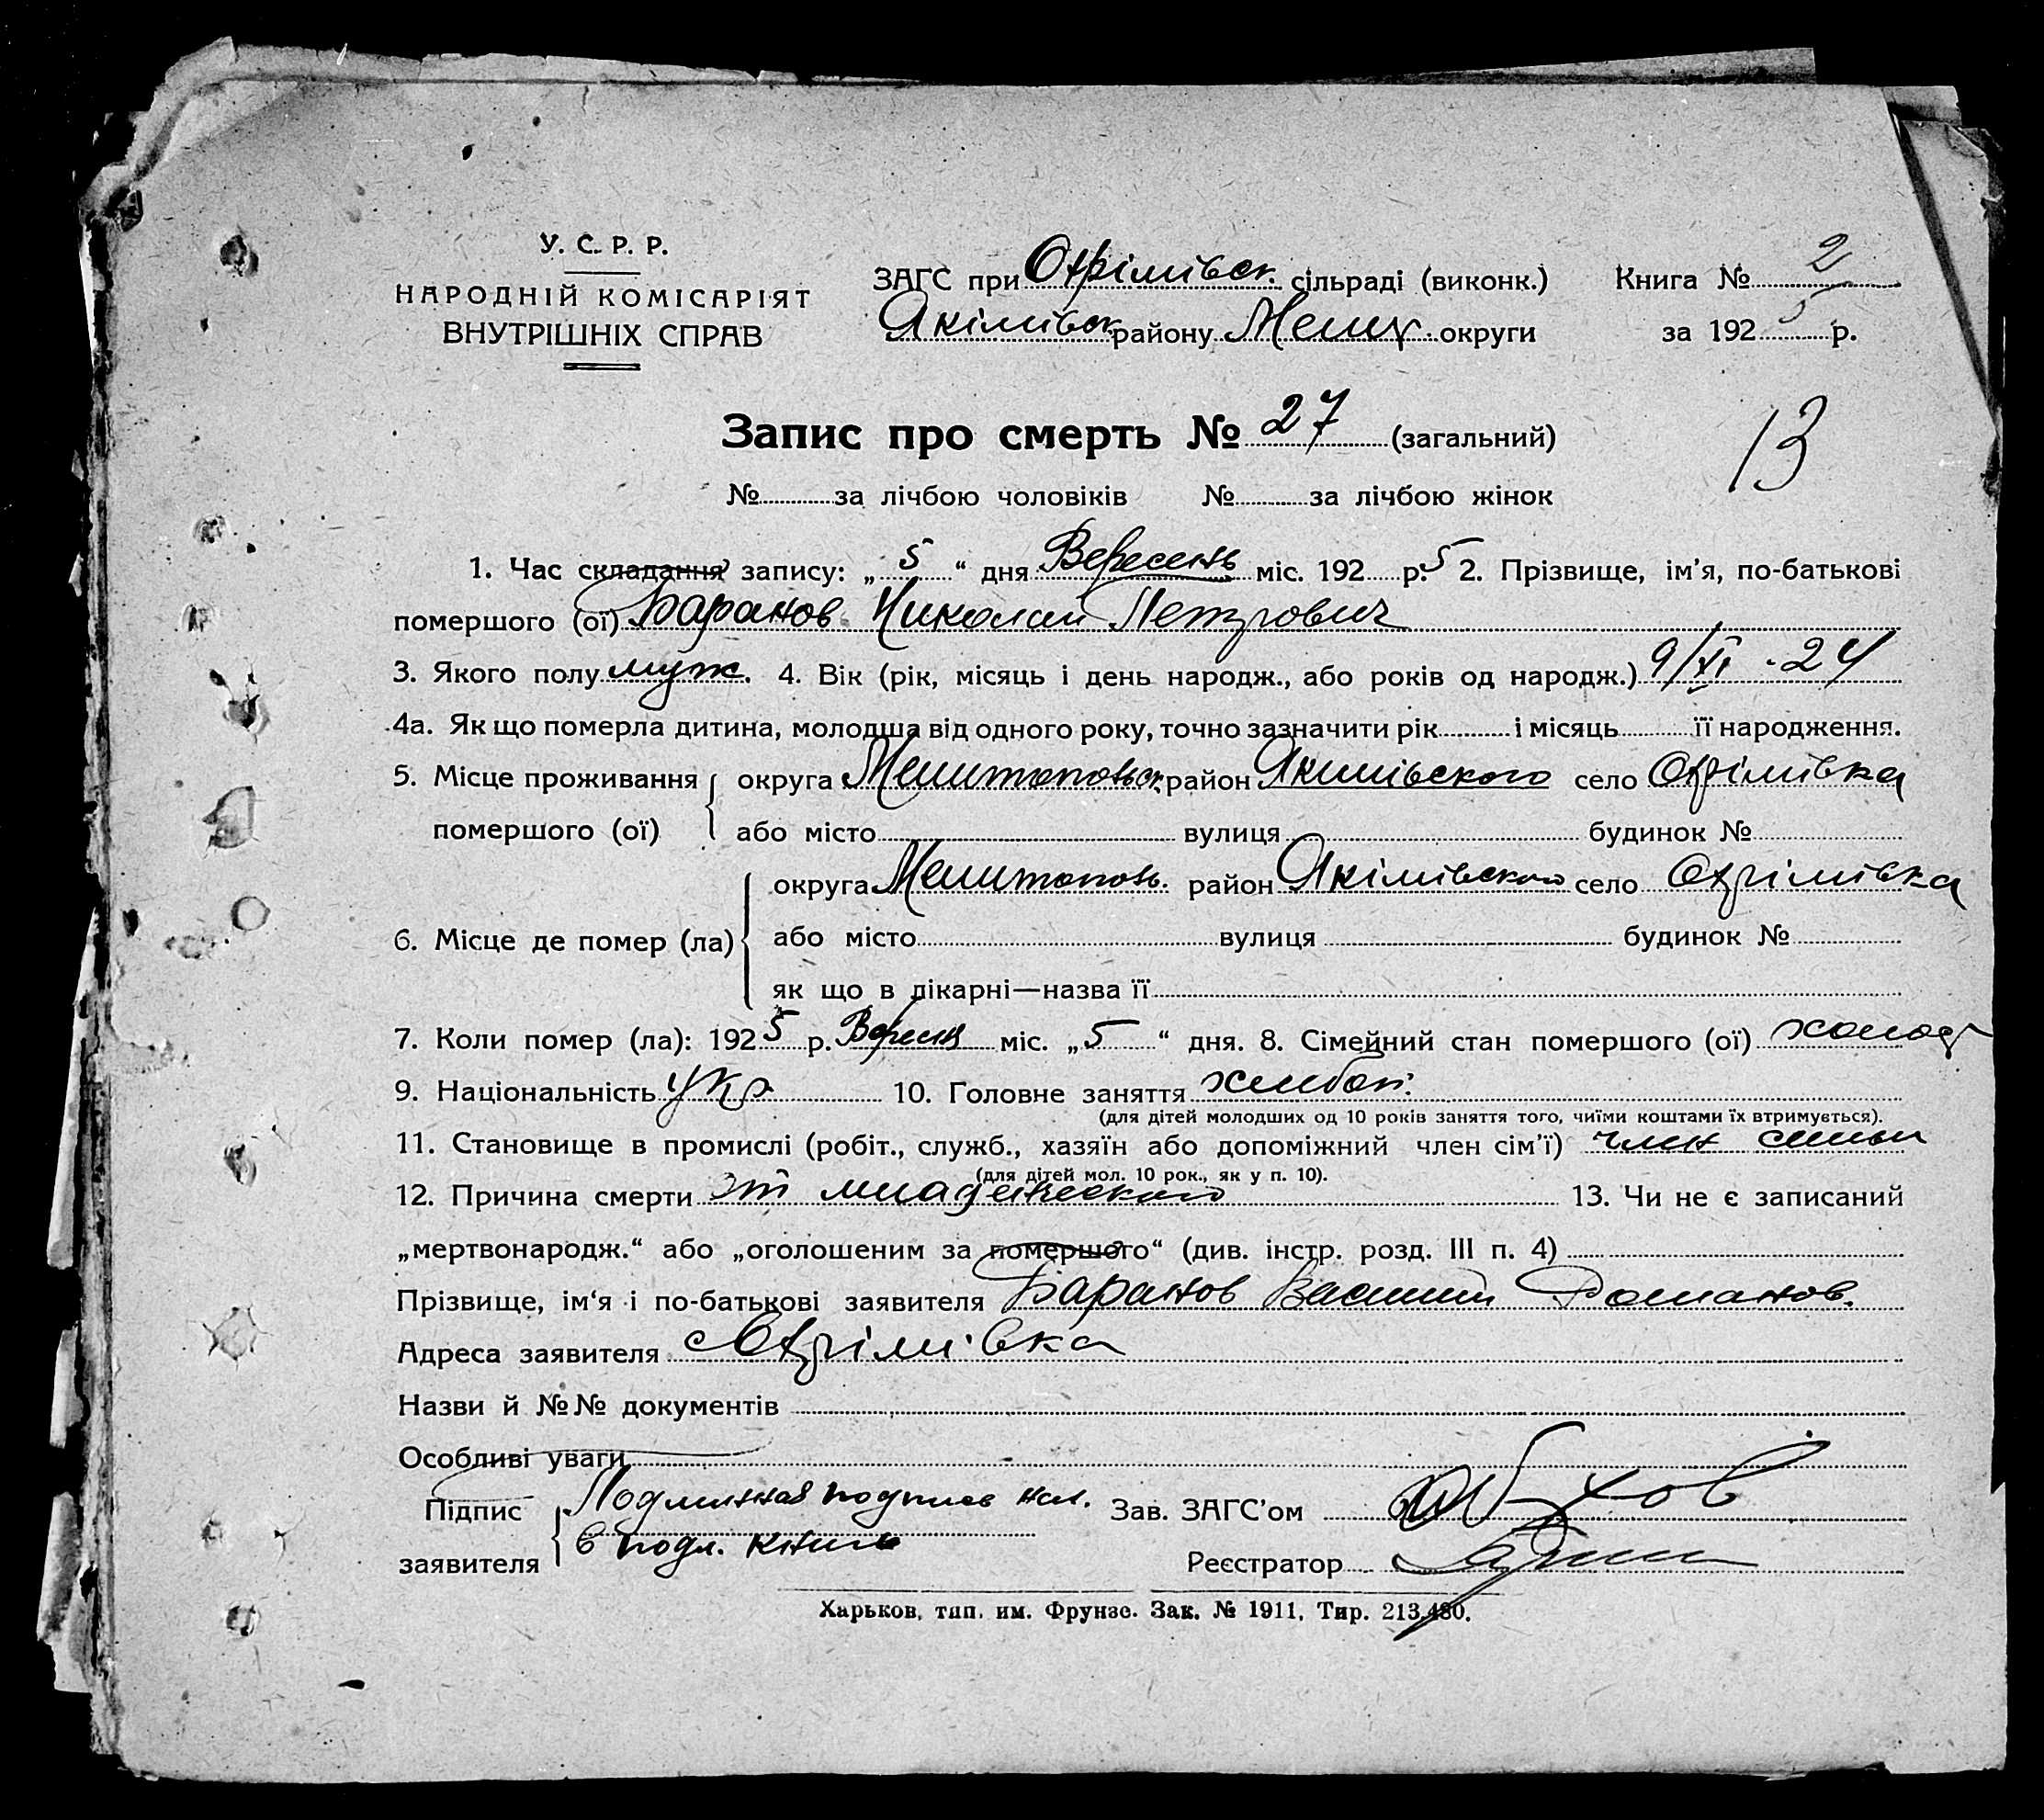 У. С. Р. Р.
НАРОДНІЙ КОМІСАРІЯТ
ВНУТРІШНІХ СПРАВ
ЗАГС при Охрімівск. сільраді (виконк.) Книга № 2
Якімівск району Мелит. округи за 192 5 р.
Запис про смерть № 27 (загальний)
13
№ за лічбою чоловіків № за лічбою жінок
1. Час складання запису: „ 5 “ дня Вересень міс. 192 р. 5 2. Прізвище, ім’я, по-батькові
помершого (ої) Баранов Николай Петрович
3. Якого полу муж. 4. Вік (рік, місяць і день народж., або років од народж.) 9/XI - 24
4а. Як що померла дитина, молодша від одного року, точно зазначити рік і місяць її народження.
5. Місце проживання округа Мелитопольск район Якимівского село Охрімівка
помершого (ої) або місто вулиця будинок №
округа Мелитополь. район Якімівского село Охрімівка
6. Місце де помер (ла) або місто вулиця будинок №
як що в лікарні—назва її
7. Коли помер (ла): 192 5 р. міс. „ 5 “ дня. 8. Сімейний стан помершого (ої) холост
9. Національність укр 10. Головне заняття хлебоп.
(для дітей молодших од 10 років заняття того, чиїми коштами їх втримується).
11. Становище в промислі (робіт., служб., хазяїн або допоміжний член сім’ї) член семьи
(для дітей мол. 10 рок., як у п. 10).
12. Причина смерти от младенческого 13. Чи не є записаний
„мертвонародж.“ або „оголошеним за помершого“ (див. інстр. розд. III п. 4)
Прізвище, ім‘я і по-батькові заявителя Баранов Василий Романов.
Адреса заявителя Охрімівка
Назви й №№ документів
Особливі уваги
Підпис Подлинная подпись Зав. ЗАГС’ом
заявителя в подл. книге Реєстратор
Харьков, тип. им. Фрунзе. Зак. № 1911, Тир. 213.480.